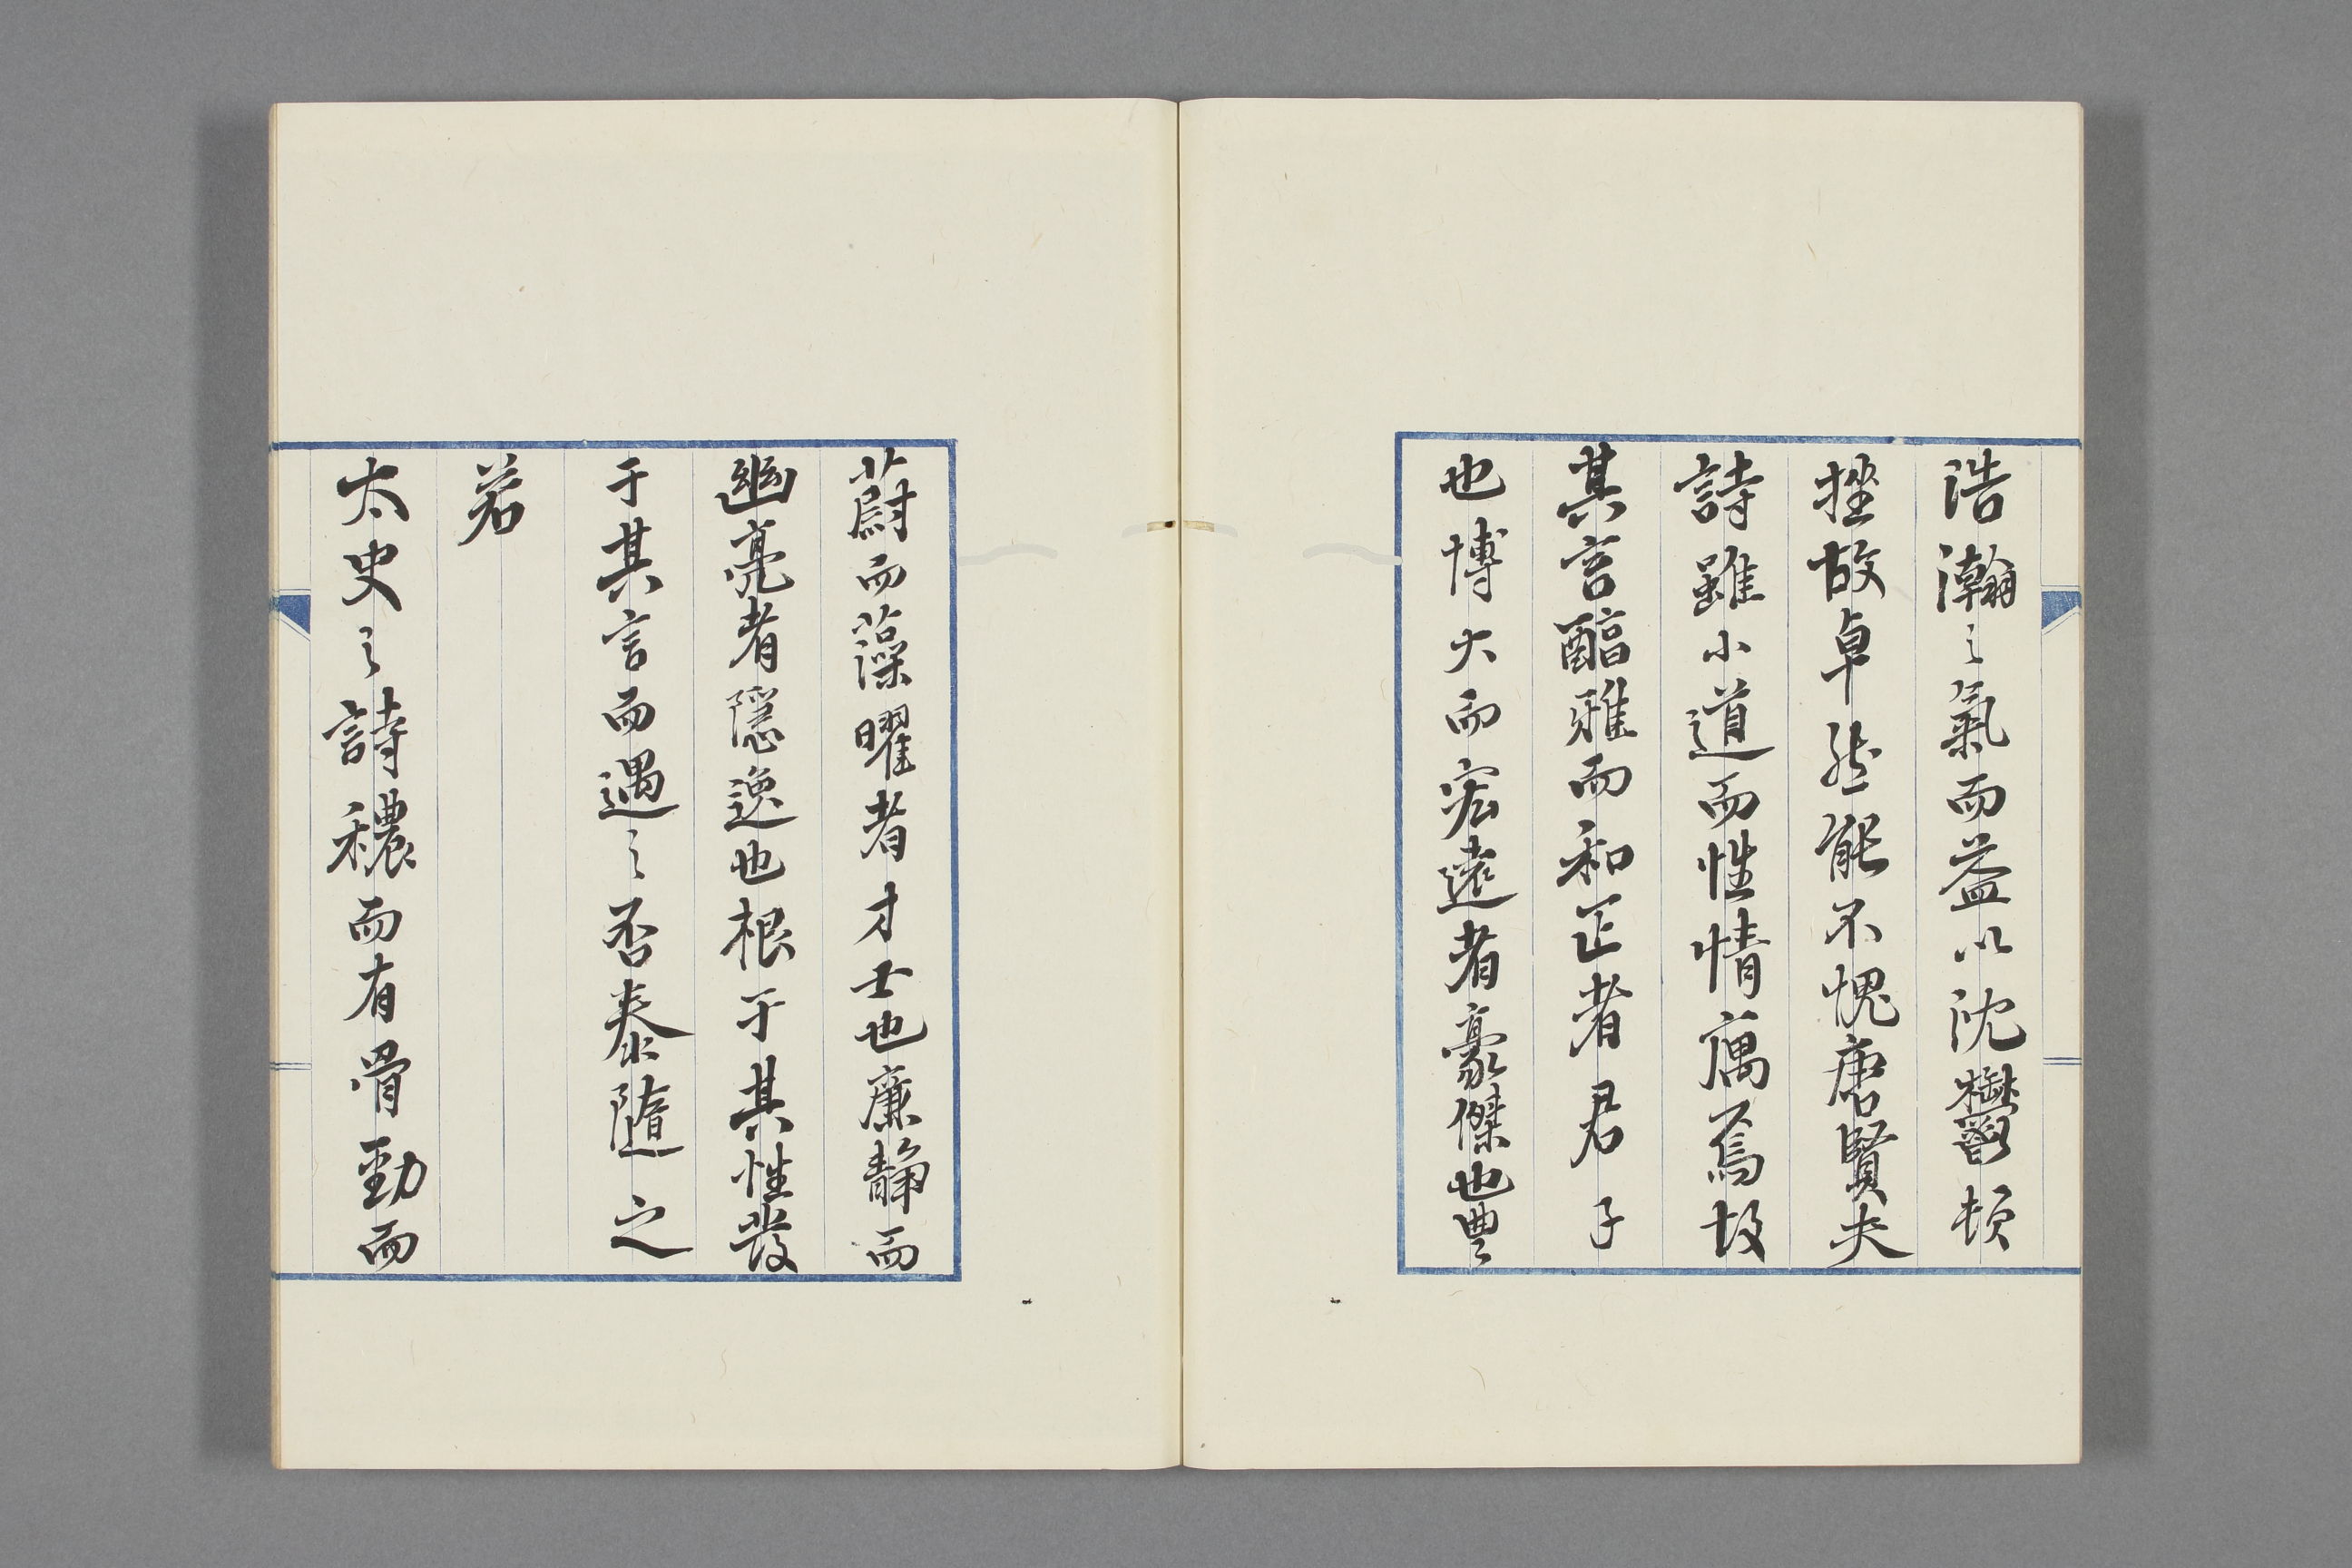 浩瀚之氣而益以沈鬱頓
挫故卓然能不愧唐賢夫
詩雖小道而性情寓焉故
其言醞雅而和正者君子
也博大而宏遠者豪傑也豐
蔚而藻曜者才士也廉静而
幽亮者隱逸也根于其性發
于其言而遇之否泰隨之
若
太史之詩穠而有骨勁而